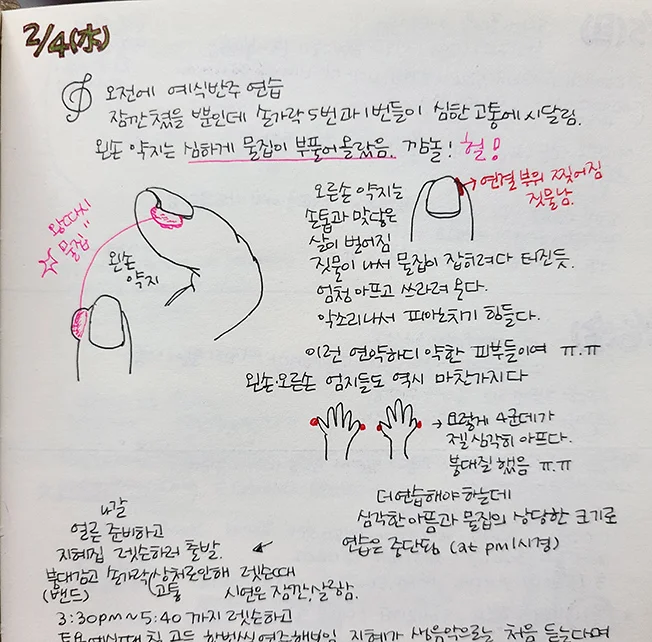 2/4(水)
오전에 예식반주 연습
잠깐 쳤을 뿐인데 손가락 5번과 1번들이 심한 고통에 시달림.
왼손 약지는 심하게 물집이 부풀어 올랐음. 깜놀! 헐!
오른손 약지는
손톱과 맞닿은
살이 벌어짐
짓물이 나서 물집이 잡히려다 터진듯.
엄청 아프고 쓰라려 운다.
악소리나서 피아노치기 힘들다.
→ 연결 부위 찢어짐
짓물남.
왕따시
물집"
왼손
약지
이런 연약하디 약한 피부들이여 ㅠ.ㅠ
왼손·오른손 엄지들도 역시 마찬가지다
→ 요렇게 4군데가
젤 심각히 아프다.
붕대질 했음 ㅠ.ㅠ
더 연습해야 하는데
심각한 아픔과 물집의 상당한 크기로
연습은 중단됨 (at pm 1시경)
얼른 준비하고
지혜집 렛슨하러 출발.
붕대감고 손가락 상처로인해 렛슨때
(밴드) 고통 시연은 잠깐, 살람함.
3:30pm~5:40 까지 렛슨하고
지혜가 생음악으로는 처음 듣는다며